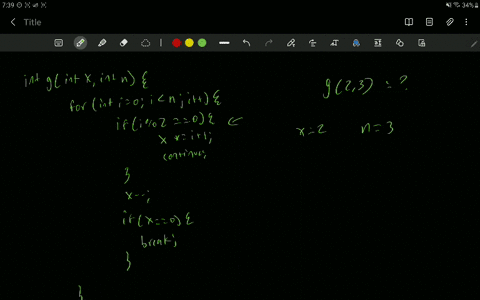 7:39
34%
Title
int g(int x, int n) {
for(int i=0; i<n; i++) {
if(i%2 ==0){
x *= i++;
continue;
}
x--;
if(x==0){
break;
}
}
g(2,3) = ?
x=2 n=3